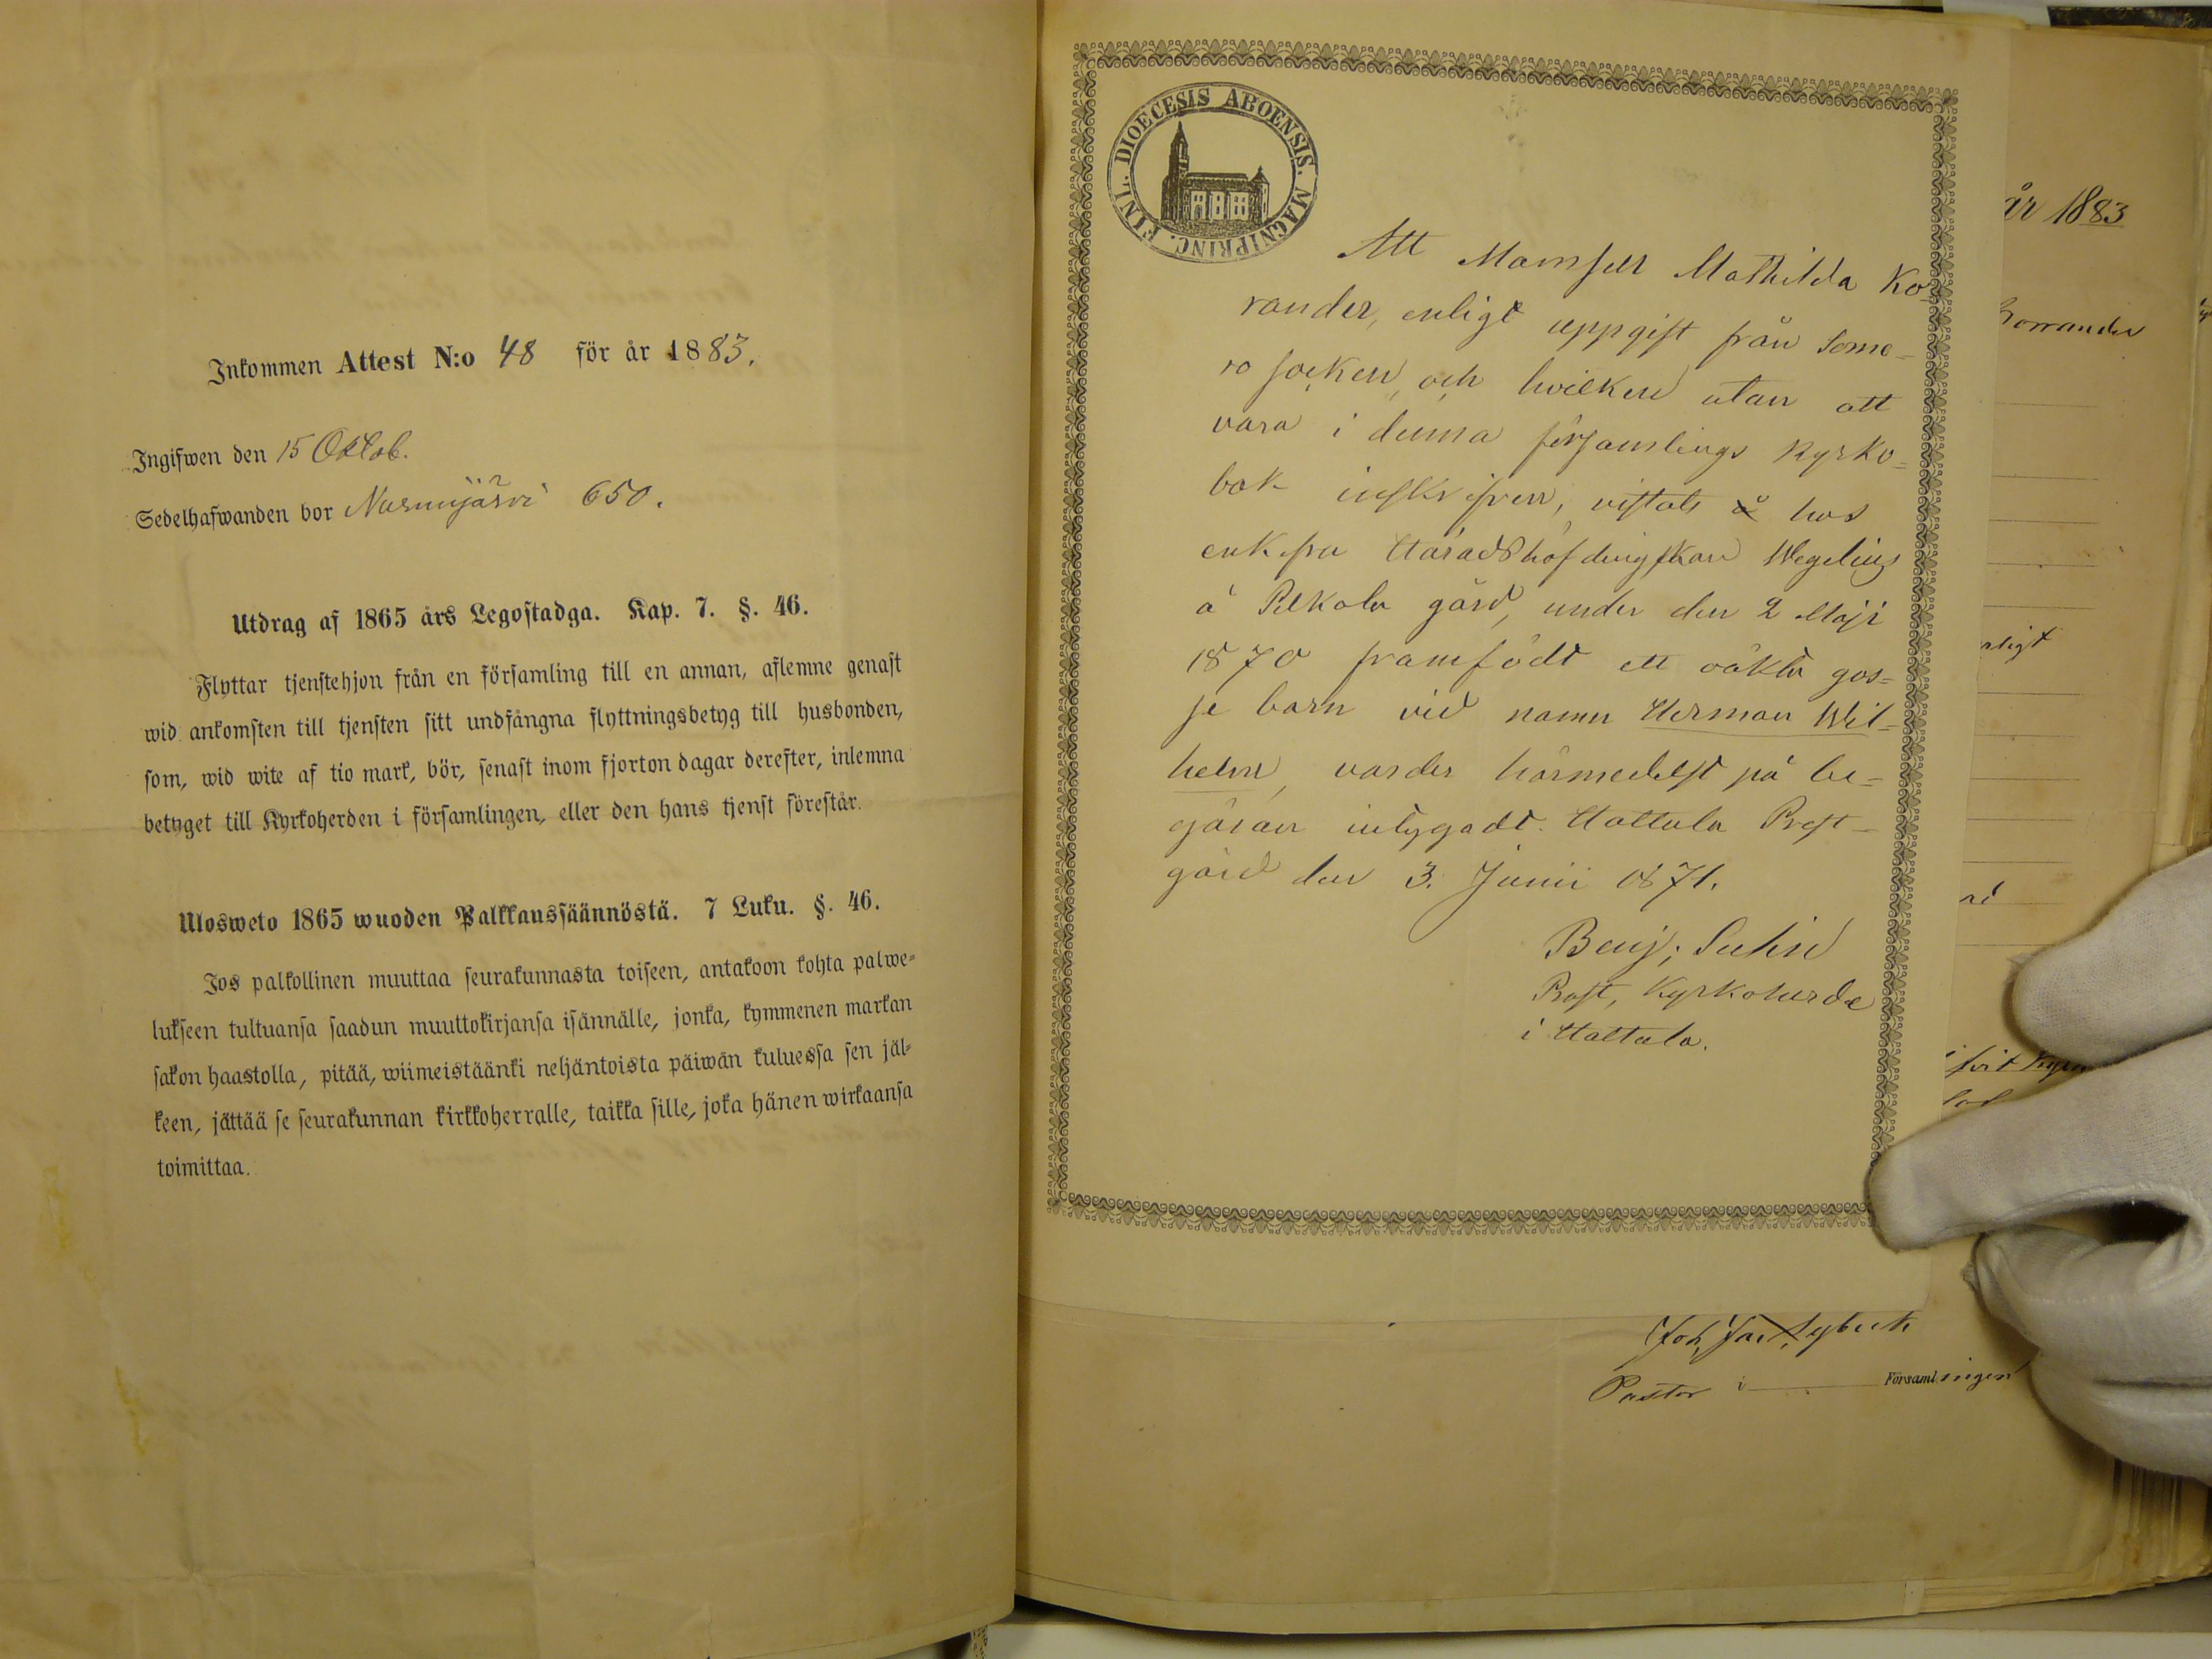 Inkommen Attest N:o 48 för år 1883.
Ingifwen den 15 Oktob.
Sedelhafwanden bor Nurmijärvi 650.
Utdrag af 1865 års Legostadga. Kap. 7. §. 46.
Flyttar tjenstehjon från en församling till en annan, aflemne genast
wid ankomsten till tjensten sitt undfångna flyttningsbetyg till husbonden,
som, wid wite af tio mark, bör, senast inom fjorton dagar derefter, inlemna
betyget till Kyrkoherden i församlingen, eller den hans tjenst förestår.
Ulosweto 1865 wuoden Palkkaussäännöstä. 7 Luku. §. 46.
Jos palkollinen muuttaa seurakunnasta toiseen, antakoon kohta palwe=
lukseen tultuansa saadun muuttokirjansa isännälle, jonka, kymmenen markan
sakon haastolla, pitää, wiimeistäänki neljäntoista päiwän kuluessa sen jäl=
keen, jättää se seurakunnan kirkkoherralle, taikka sille, joka hänen wirkaansa
toimittaa.
DIOECESIS ABOENSIS. MAGNIPRINC. FINL.
Att Mamsell Mathilda Ko-
rander, enligt uppgift från Some=
ro socken, och hvilken utan att
vara i denna församlings kyrko=
bok inskrifven, vistats å hos
enkefru Häradshöfdingskan Wegelius
å Pelkola gård, under den 2 Maji
1870 framfödt ett oäkta gos=
se barn vid namn Herman Wil=
helm, varder härmedelst på be=
gäran intygadt. Hattula Prest-
gård den 3. Junii 1871.
Benj; Suhin
Prost, Kyrkoherde
i Hattula.
år 1883
Korrander
Pastor i Församlingen